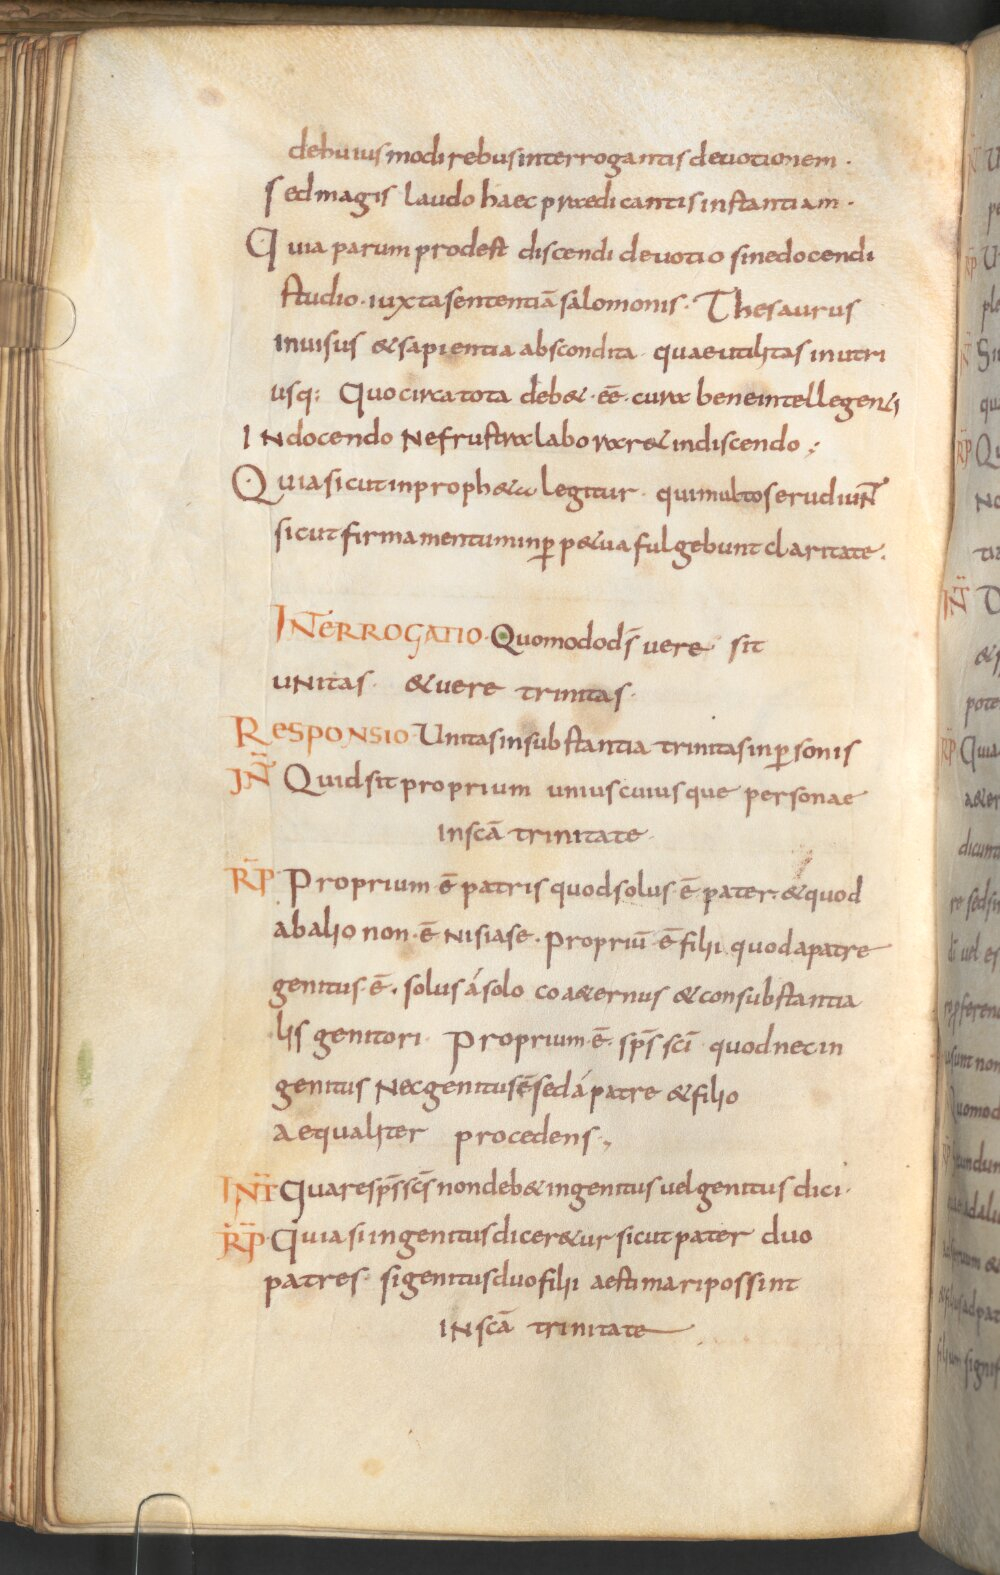 dehuiusmodi rebus interrogantis deuotionem ·
Sed magis laudo haec praedicantis instantiam ·
Quia parum prodest discendi deuotio sine docendi
studio · iuxta sententiā salomonis · Thesaurus
inuisus & sapientia abscondita · quae utilitas in utri
usq; Quocirca tota deb& · eē · cura bene intellegendi
IN docendo Ne frustra labora&ur & in discendo ;
Quia sicut in proph&a legitur · qui multos erudiuNT̄
sicut firmamentum in ꝑp&ua fulgebunt claritate .
INT̄ERROGATIO · Quomodo d̄s uere sit
uNitas · & uere trinitas ·
RESPONSIO Unitas in substantia trinitas in ꝑsonis
IN̄ Quid sit proprium uniuscuiusque personae
in scā trinitate ·
R̄P Proprium · ē patris quod solus · ē pater · & quod
ab alio non · ē Nisi a se · Propriū · ē filii quod a patre
genitus · ē · solus á solo coa&ernus & consubstantia
lis genitori · Proprium · ē · sp̄s sc̄i quod nec in
genitus Nec genitus ē sed á patre & filio
aequaliter procedens ·,
IN̄T Quare sp̄s sc̄s non deb& ingenitus uel genitus dici ·
R̄P · Quia si ingenitus dicer&ur sicut pater duo
patres · si genitus duo filii aestimari possint
IN scā trinitate